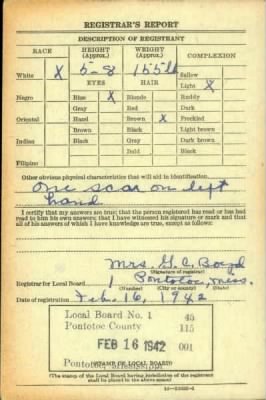 REGISTRAR'S REPORT
DESCRIPTION OF REGISTRANT
RACE HEIGHT (Approx.) WEIGHT (Approx.) COMPLEXION
White X 5-8 155 lb Sallow
EYES HAIR Light X
Negro Blue X Blonde Ruddy
Gray Red Dark
Oriental Hazel Brown X Freckled
Brown Black Light brown
Indian Black Gray Dark brown
Bald Black
Filipino
Other obvious physical characteristics that will aid in identification
one scar on left
hand
I certify that my answers are true; that the person registered has read or has had
read to him his own answers; that I have witnessed his signature or mark and that
all of his answers of which I have knowledge are true, except as follows:
Mrs. G. C. Bond
(Signature of registrar)
Registrar for Local Board 1 Pontotoc, Miss.
(Number) (City or county) (State)
Date of registration Feb. 16, 1942
Local Board No. 1 45
Pontotoc County 115
FEB 16 1942 001
Pontotoc, Mississippi
(STAMP OF LOCAL BOARD)
(The stamp of the Local Board having jurisdiction of the registrant
shall be placed in the above space.)